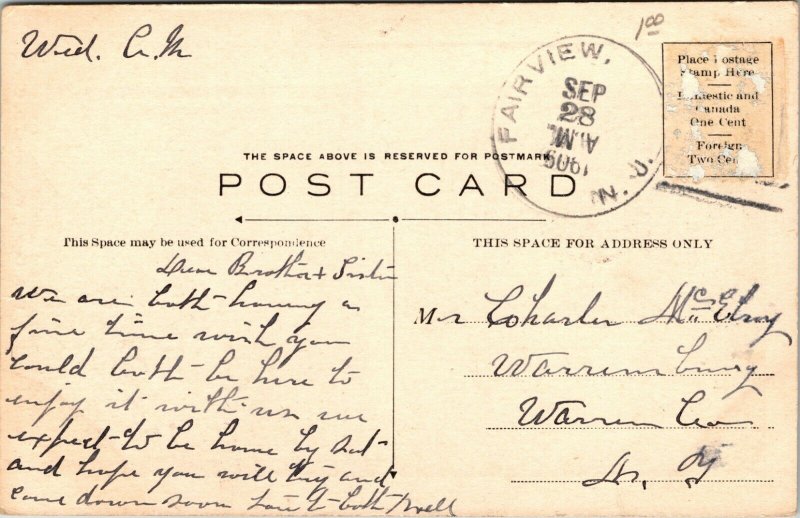 Wed. A.M
1.00
FAIRVIEW, N. J.
SEP
28
A.M.
1909
Place Postage
Stamp Here
Domestic and
Canada
One Cent
Foreign
Two Cent
THE SPACE ABOVE IS RESERVED FOR POSTMARK
POST CARD
This Space may be used for Correspondence
THIS SPACE FOR ADDRESS ONLY
Dear Brother & Sister
We are both having a
fine time wish you
could both be here to
enjoy it with us we
expect to be home by Sat
and hope you will try and
come down soon love to both Nell
Mr Charles McElroy
Warrensburg
Warren Co
N. Y